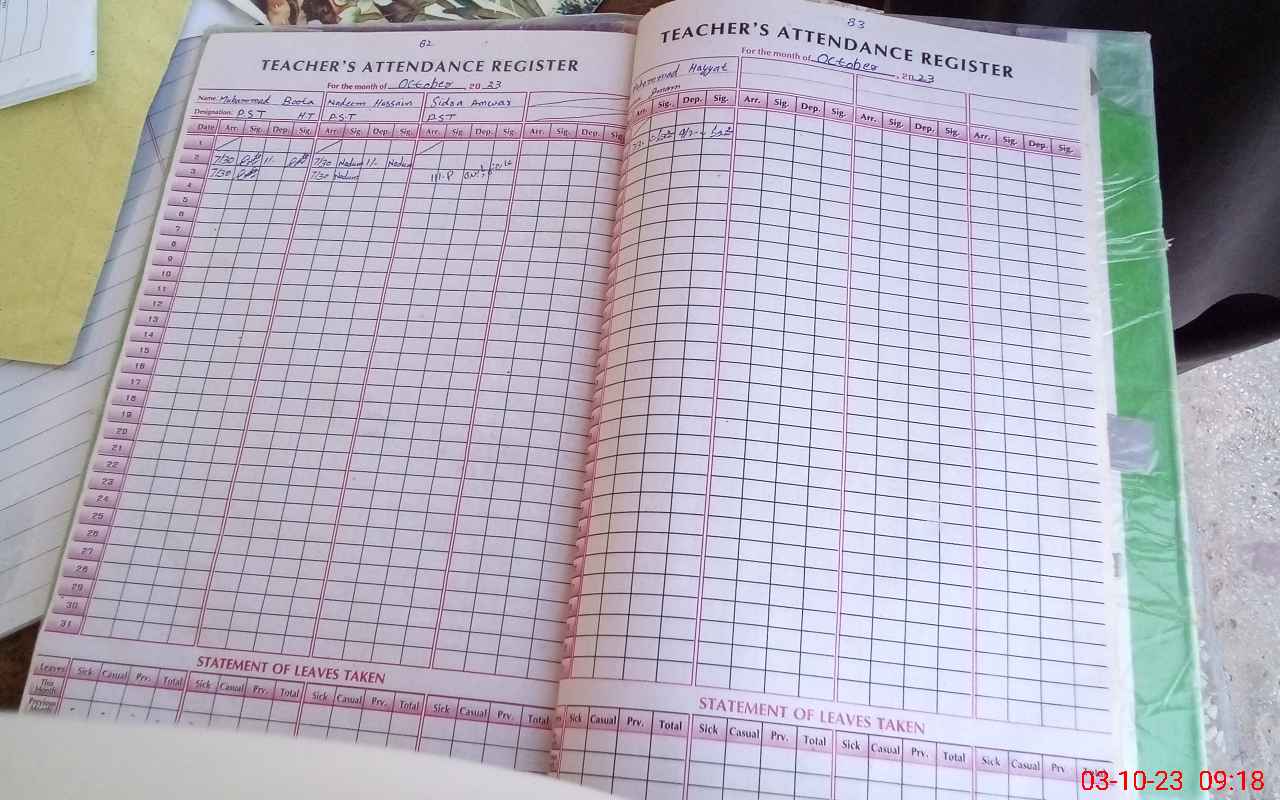 82
TEACHER'S ATTENDANCE REGISTER
For the month of October, 2023
Name: Mohammad Boota Nadeem Hussain Sidra Anwar
Designation: P.S.T H.T P.S.T P.S.T
Date Arr. Sig. Dep. Sig. Arr. Sig. Dep. Sig. Arr. Sig. Dep. Sig. Arr. Sig. Dep. Sig.
1
2 7/30 1/- 7/30 Nadeem 1/- Nadeem
3 7/30 7/30 Nadeem
4
5
6
7
8
9
10
11
12
13
14
15
16
17
18
19
20
21
22
23
24
25
26
27
28
29
30
31
STATEMENT OF LEAVES TAKEN
Leaves Sick Casual Prv. Total Sick Casual Prv. Total Sick Casual Prv. Total Sick Casual Prv. Total
This Month
83
TEACHER'S ATTENDANCE REGISTER
For the month of October, 2023
Hayyat
Arr. Sig. Dep. Sig. Arr. Sig. Dep. Sig. Arr. Sig. Dep. Sig. Arr. Sig. Dep. Sig.
STATEMENT OF LEAVES TAKEN
Sick Casual Prv. Total Sick Casual Prv. Total Sick Casual Prv. Total Sick Casual Prv Total
03-10-23 09:18